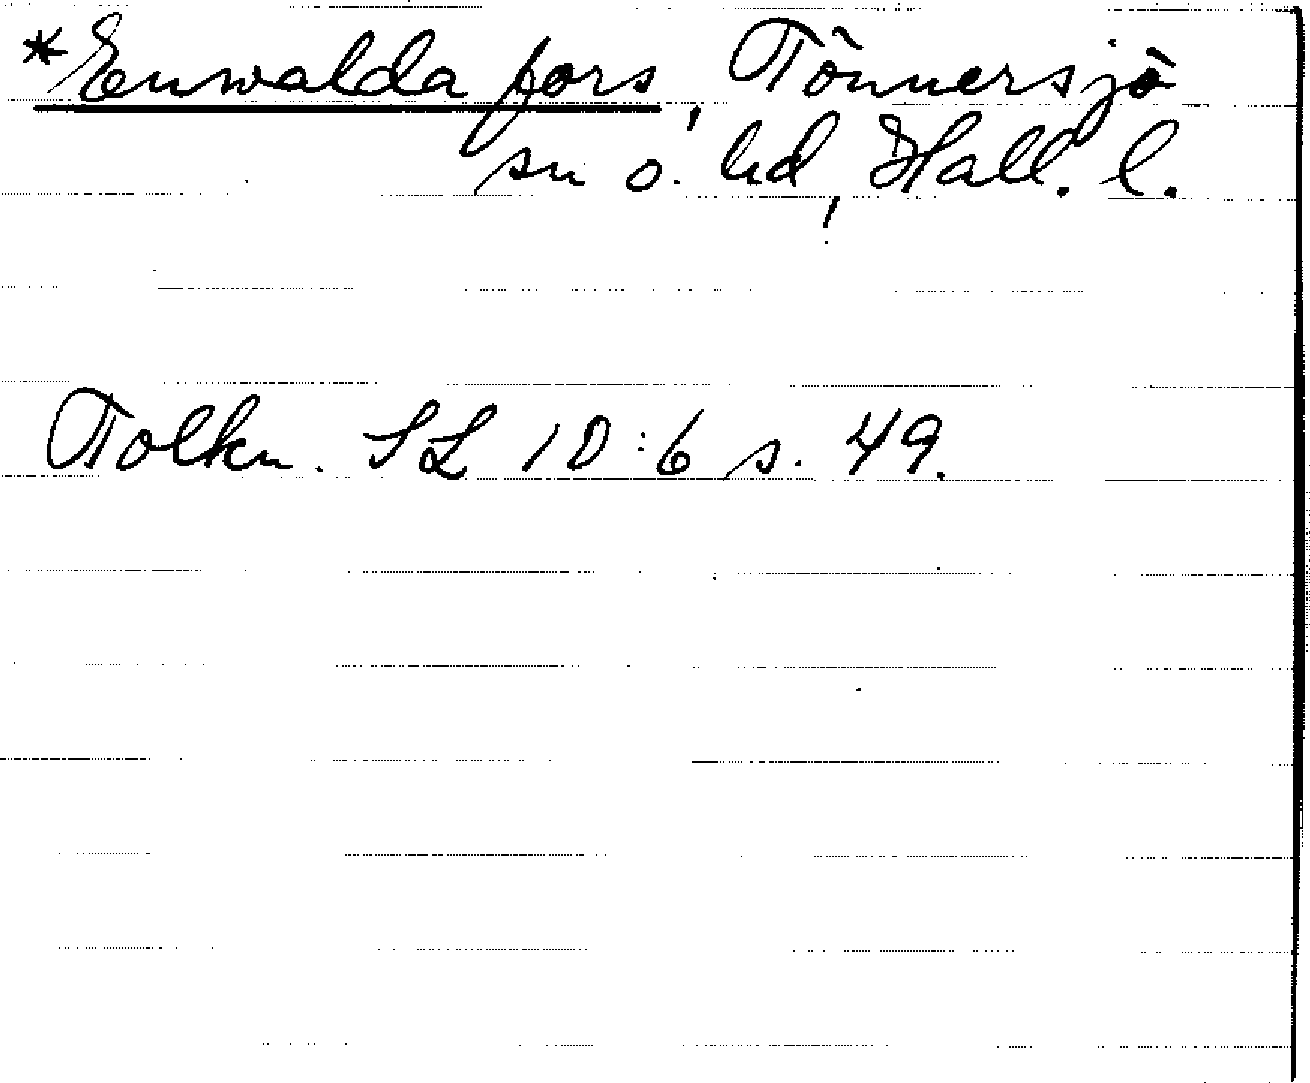 *Enwalda fors, Tönnersjö
sn o. hd, Hall. l.
Tolkn. SL 10:6 s. 49.